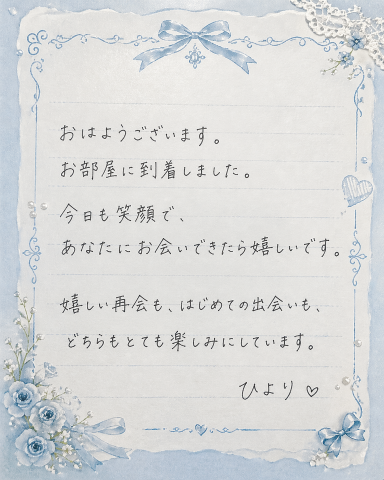 おはようございます。
お部屋に到着しました。
今日も笑顔で、
あなたにお会いできたら嬉しいです。
嬉しい再会も、はじめての出会いも、
どちらもとても楽しみにしています。
ひより♡